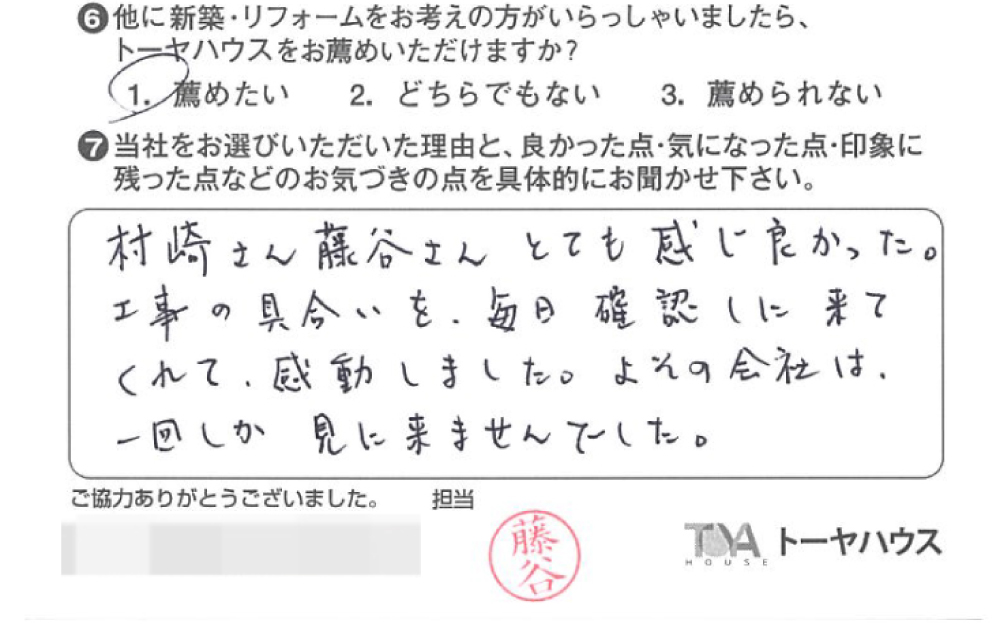 ❻他に新築・リフォームをお考えの方がいらっしゃいましたら、
トーヤハウスをお薦めいただけますか?
1. 薦めたい 2. どちらでもない 3. 薦められない
❼当社をお選びいただいた理由と、良かった点・気になった点・印象に
残った点などのお気づきの点を具体的にお聞かせ下さい。
村崎さん藤谷さん とても感じ良かった。
工事の具合いを、毎日確認しに来て
くれて、感動しました。よその会社は、
一回しか見に来ませんでした。
ご協力ありがとうございました。 担当
藤谷
TOYA HOUSE トーヤハウス